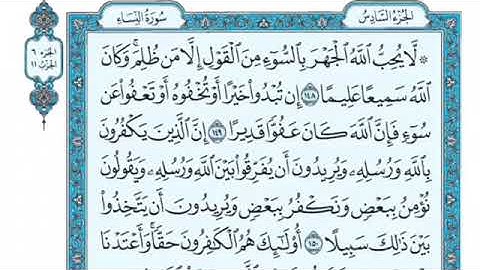 الجزء السادس
سورة النساء
الجزء ٦
الحزب ١١
۞ لَّا يُحِبُّ ٱللَّهُ ٱلۡجَهۡرَ بِٱلسُّوٓءِ مِنَ ٱلۡقَوۡلِ إِلَّا مَن ظُلِمَۚ وَكَانَ
ٱللَّهُ سَمِيعًا عَلِيمًا ١٤٨ إِن تُبۡدُواْ خَيۡرًا أَوۡ تُخۡفُوهُ أَوۡ تَعۡفُواْ عَن
سُوٓءٖ فَإِنَّ ٱللَّهَ كَانَ عَفُوّٗا قَدِيرًا ١٤٩ إِنَّ ٱلَّذِينَ يَكۡفُرُونَ
بِٱللَّهِ وَرُسُلِهِۦ وَيُرِيدُونَ أَن يُفَرِّقُواْ بَيۡنَ ٱللَّهِ وَرُسُلِهِۦ وَيَقُولُونَ
نُؤۡمِنُ بِبَعۡضٖ وَنَكۡفُرُ بِبَعۡضٖ وَيُرِيدُونَ أَن يَتَّخِذُواْ
بَيۡنَ ذَٰلِكَ سَبِيلًا ١٥٠ أُوْلَٰٓئِكَ هُمُ ٱلۡكَٰفِرُونَ حَقّٗاۚ وَأَعۡتَدۡنَا